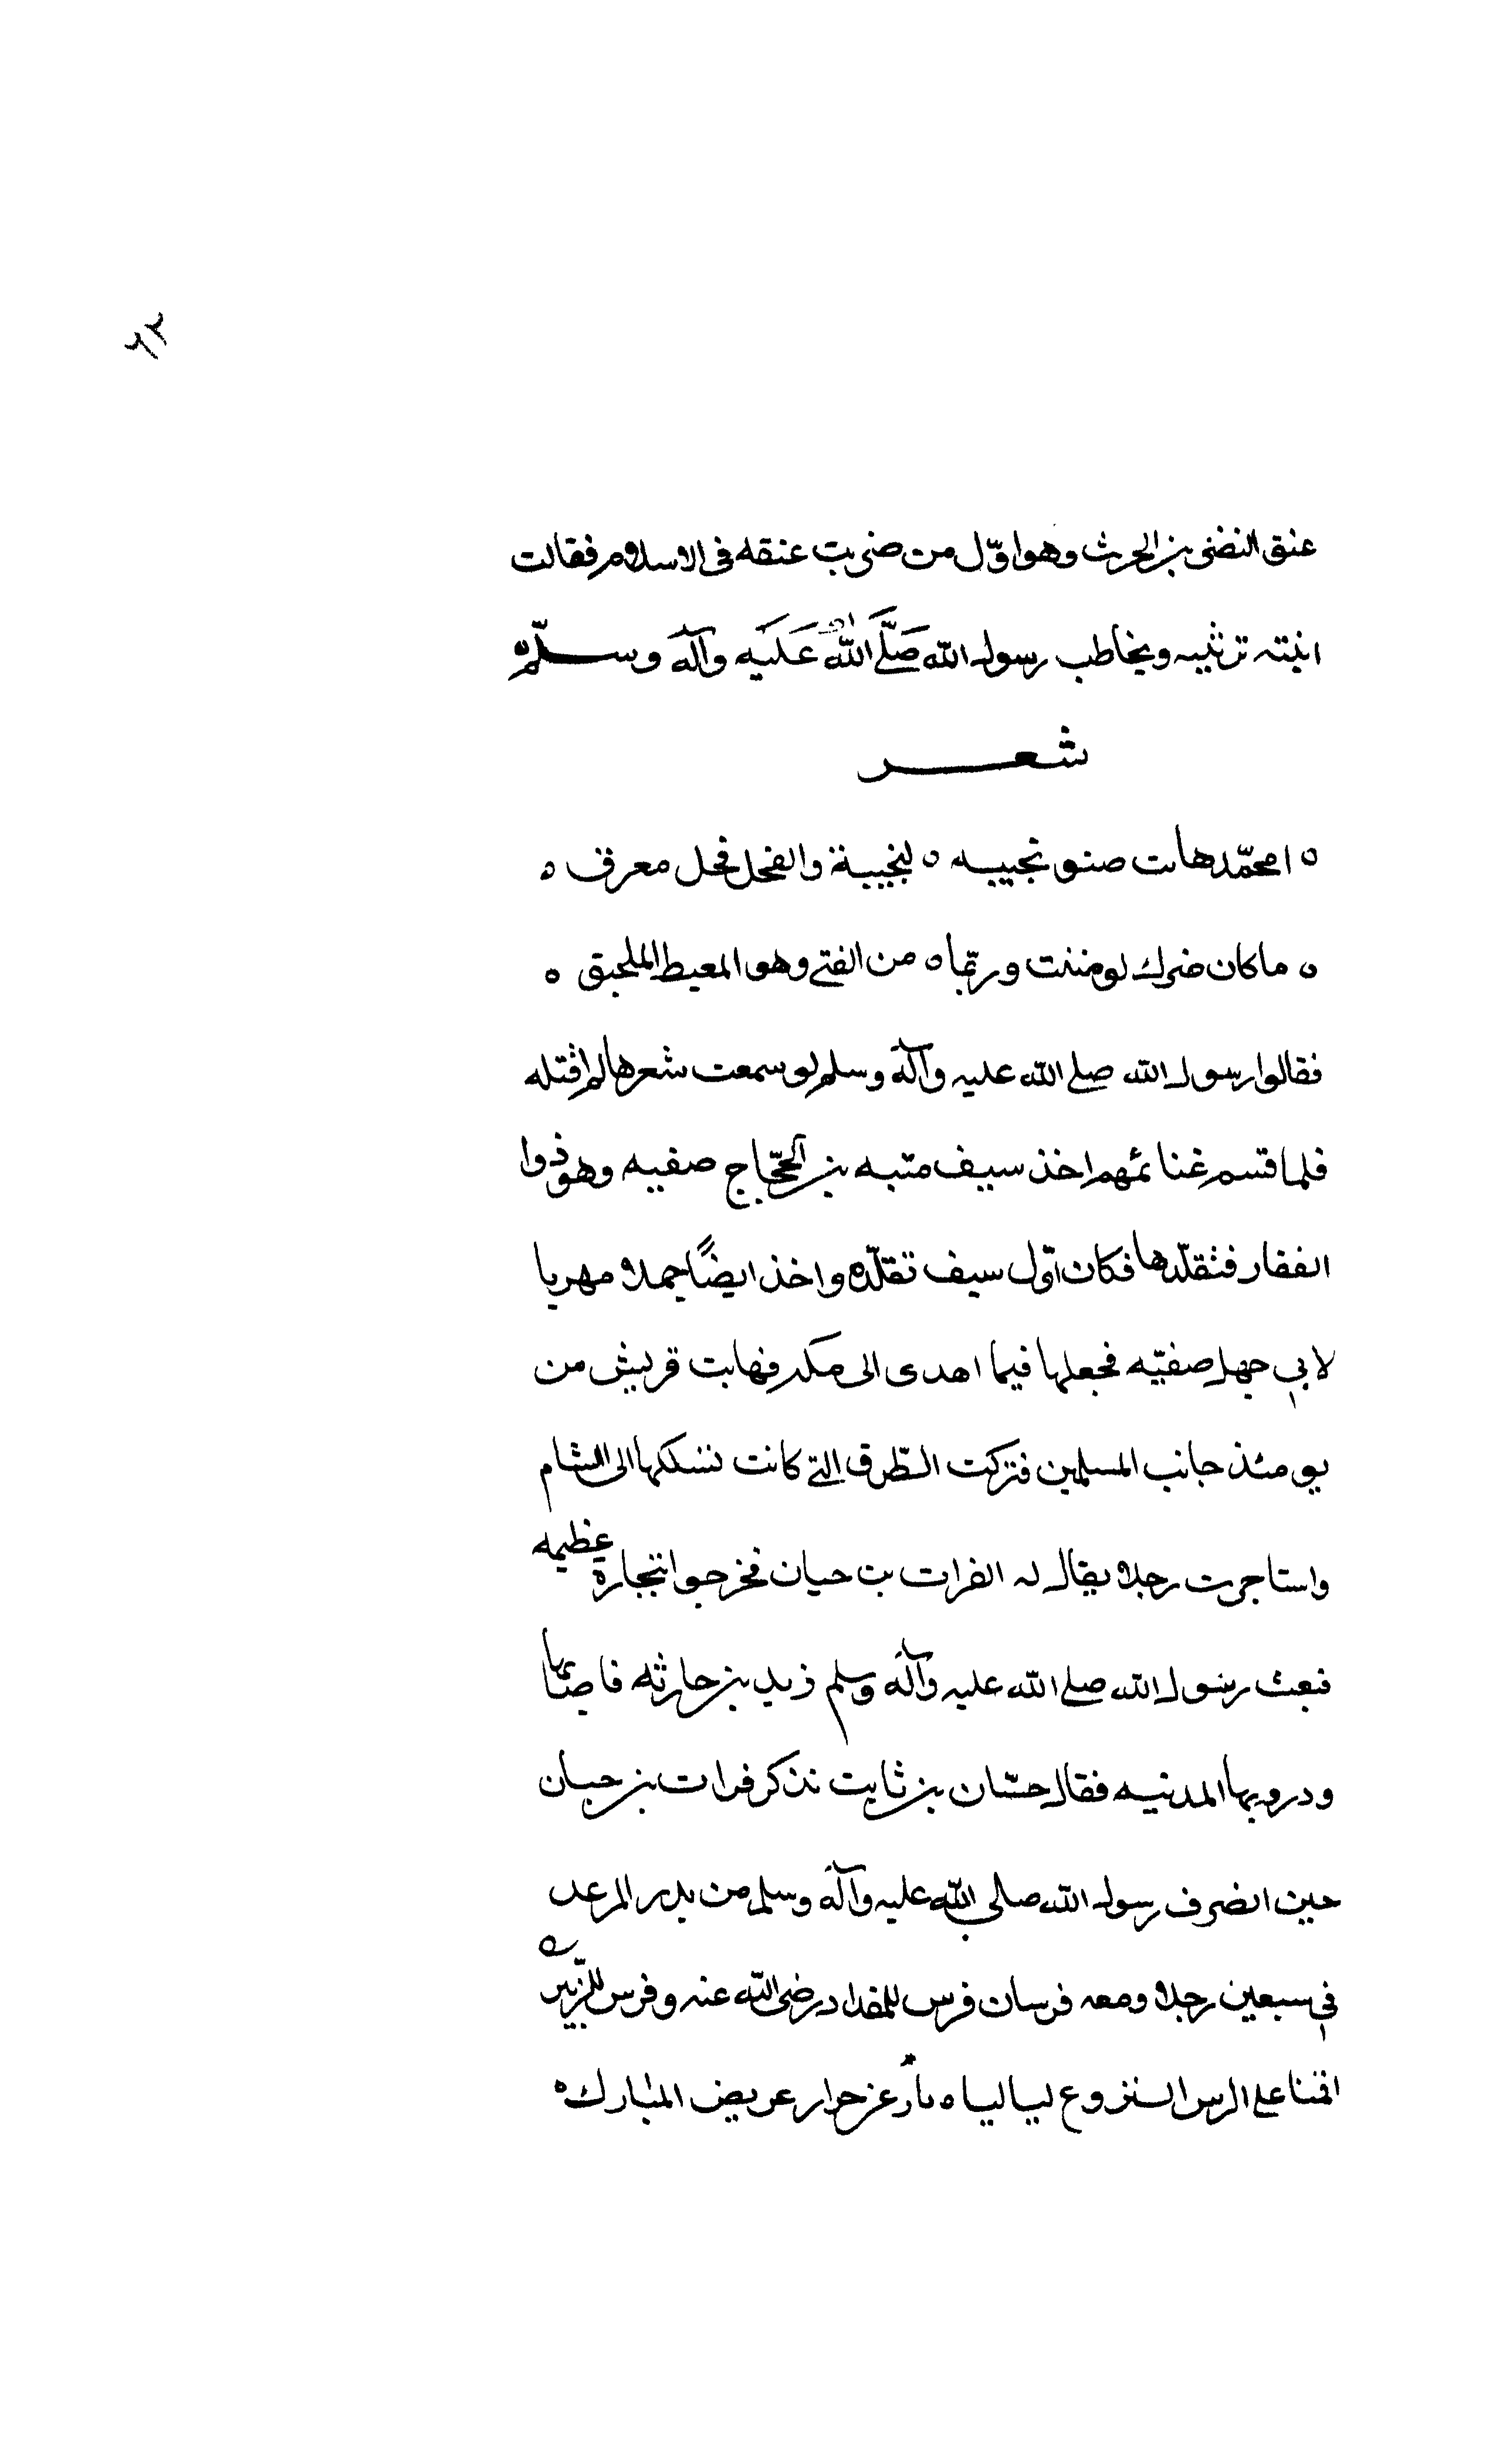 ٦٢
عنق النضى بن الحرث وهو اوّل من ضربت عنقه فى الاسلام فقالت
ابنته ترثيه ويخاطب رسول الله صَلَّى اللهُ عَلَيه وآله وسلّم ه
شعر
ه امحمّد هات صنو نجيبه ه لنجيبة والفحل فحل معرق ه
ه ماكان ضرك لو مننت وربّما ه من الفتى وهو المعيط الملحبق ه
فقالوا رسول الله صلى الله عليه وآله وسلم لو سمعت شعرها لم اقتله
فلما قسم غنائمهم اخذ سيف متبه بن الحجّاج صفيه وهو ذوا
الفقار فتقلّدها فكان اوّل سيف تقلّده واخذ ايضًا جملا مهريا
لابي جهل صفيّه فجعلها فيما اهدى الى مكه فهابت قريش من
يومئذ جانب المسلمين فتركت الطّرق التى كانت نسلكها الى الشام
واستاجرت رجلا يقال له الفرات بن حيان فخرجوا بتجارة عظيمه
فبعث رسول الله صلى الله عليه وآله وسلم زيد بن حارثه فاصابها
ودروبها المدنيه فقال حسّان بن ثابت نذكر فرات بن حبان
حين انصرف رسول الله صلى الله عليه وآله وسلم من بدر المرعد
في سبعين رجلا ومعه فرسان فرس للمقداد رضى الله عنه وفرس للزّبير ه
اقمنا على الرس النزوع لياليا ه بأرعن جرار عريض المبارك ه